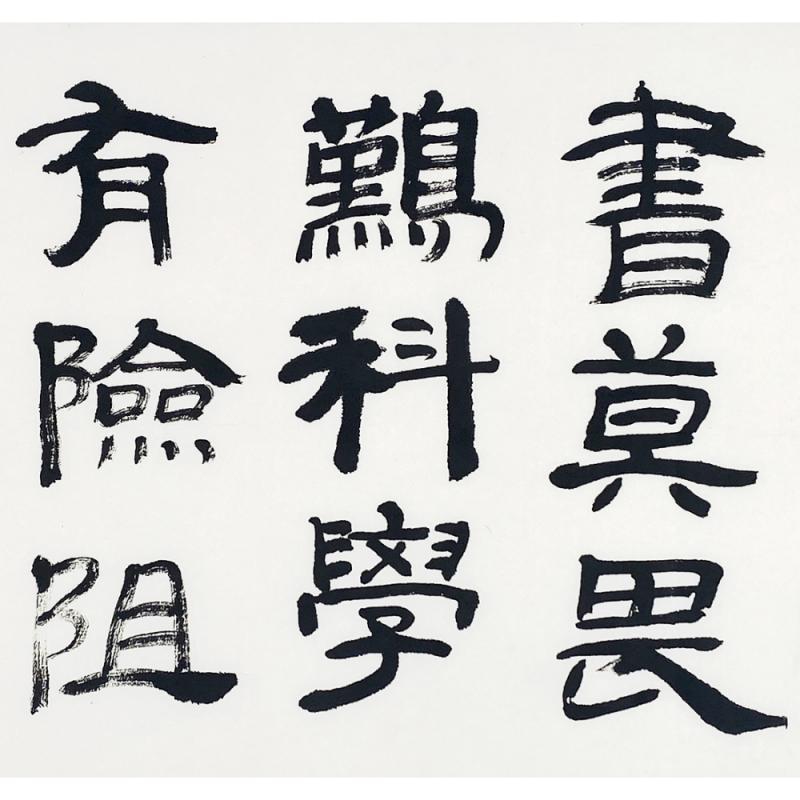 書莫畏
難科學
有險阻